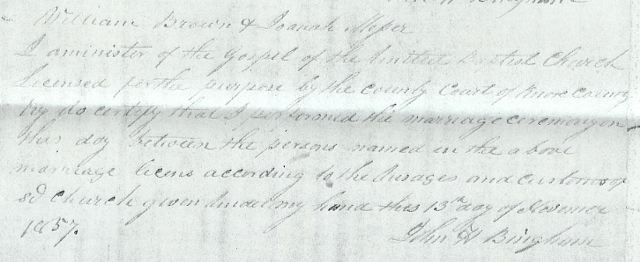 Bingham
William Brown & Joanah Meser
I aminister of the Gospel of the United Baptist Church
licensed for the purpose by the county Court of Knox County
Ky do certify that I performed the marriage ceremony on
this day between the persons named in the above
marriage licens according to the Usages and customs of
sd church given under my hand this 13th day of November
1857.
John H Bingham